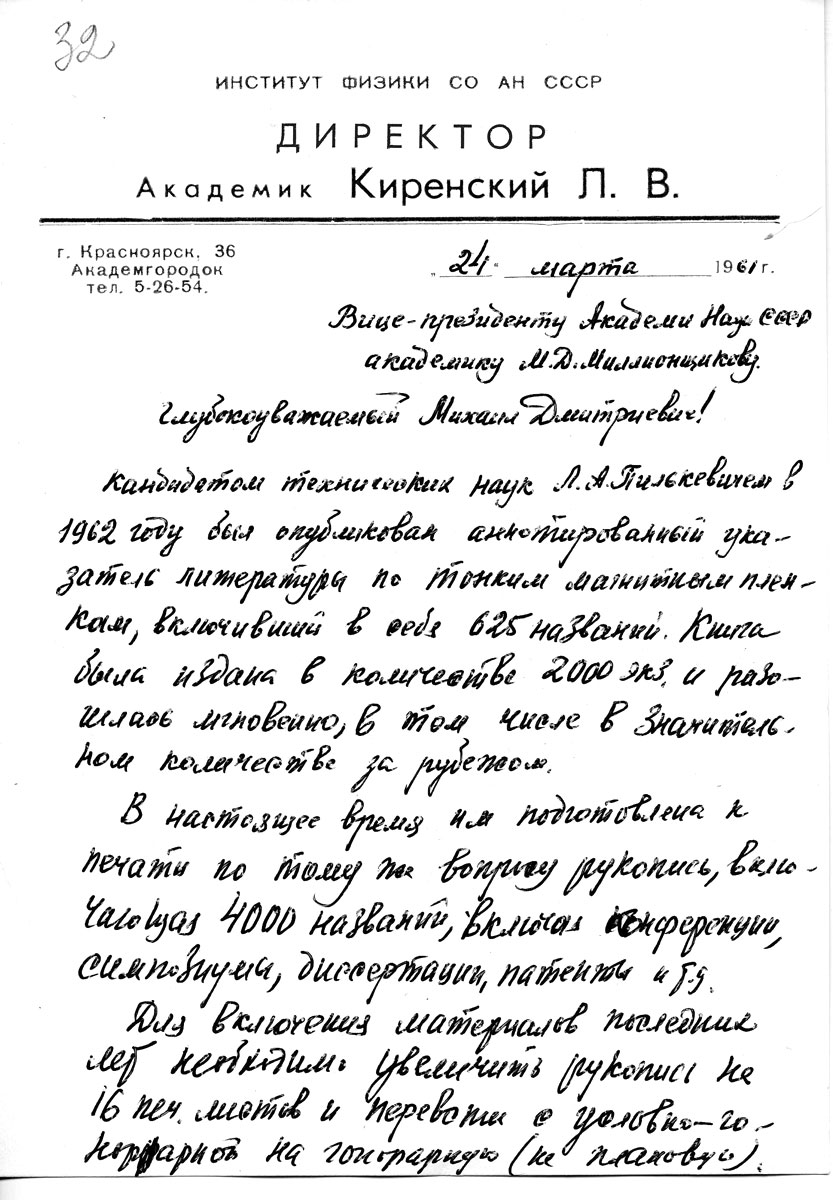 32
ИНСТИТУТ ФИЗИКИ СО АН СССР
ДИРЕКТОР
Академик Киренский Л. В.
г. Красноярск, 36
Академгородок
тел. 5-26-54.
„24“ марта 196 г.
Вице-президенту Академи Наук СССР
академику М.Д.Миллионщикову.
Глубокоуважаемый Михаил Дмитриевич!
Кандидатом технических наук Л.А.Пилькевичем в
1962 году был опубликован аннотированный ука-
затель литературы по тонким магнитным плен-
кам, включивший в себя 625 названий. Книга
была издана в количестве 2000 экз. и разо-
шлась мгновенно, в том числе в значитель-
ном количестве за рубежом.
В настоящее время им подготовлена к
печати по тому же вопросу рукопись, вклю-
чающая 4000 названий, включая конференции,
симпозиумы, диссертации, патенты и т.д.
Для включения материалов последних
лет необходимо увеличить рукопись на
16 печ. листов и перевести с условно-го-
норарной на гонорарную (не плановую).